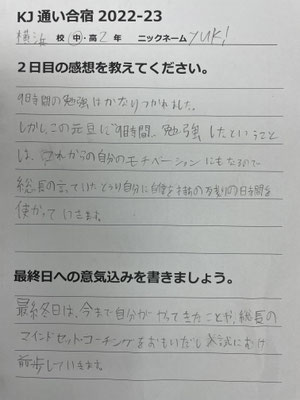 KJ 通い合宿 2022-23
横浜 校 中・高 2 年 ニックネーム YUK!
２日目の感想を教えてください。
9時間の勉強はかなりつかれました。
しかしこの元旦に9時間、勉強したということ
は、これからの自分のモチベーションにもなるので
総長の言っていたとおり自分に自信を持ち残りの日時間を
使がっていきます。
最終日への意気込みを書きましょう。
最終日は、今まで自分がやってきたことや、総長の
マインドセットコーチングをおもいだし入試にむけ
前歩していきます。